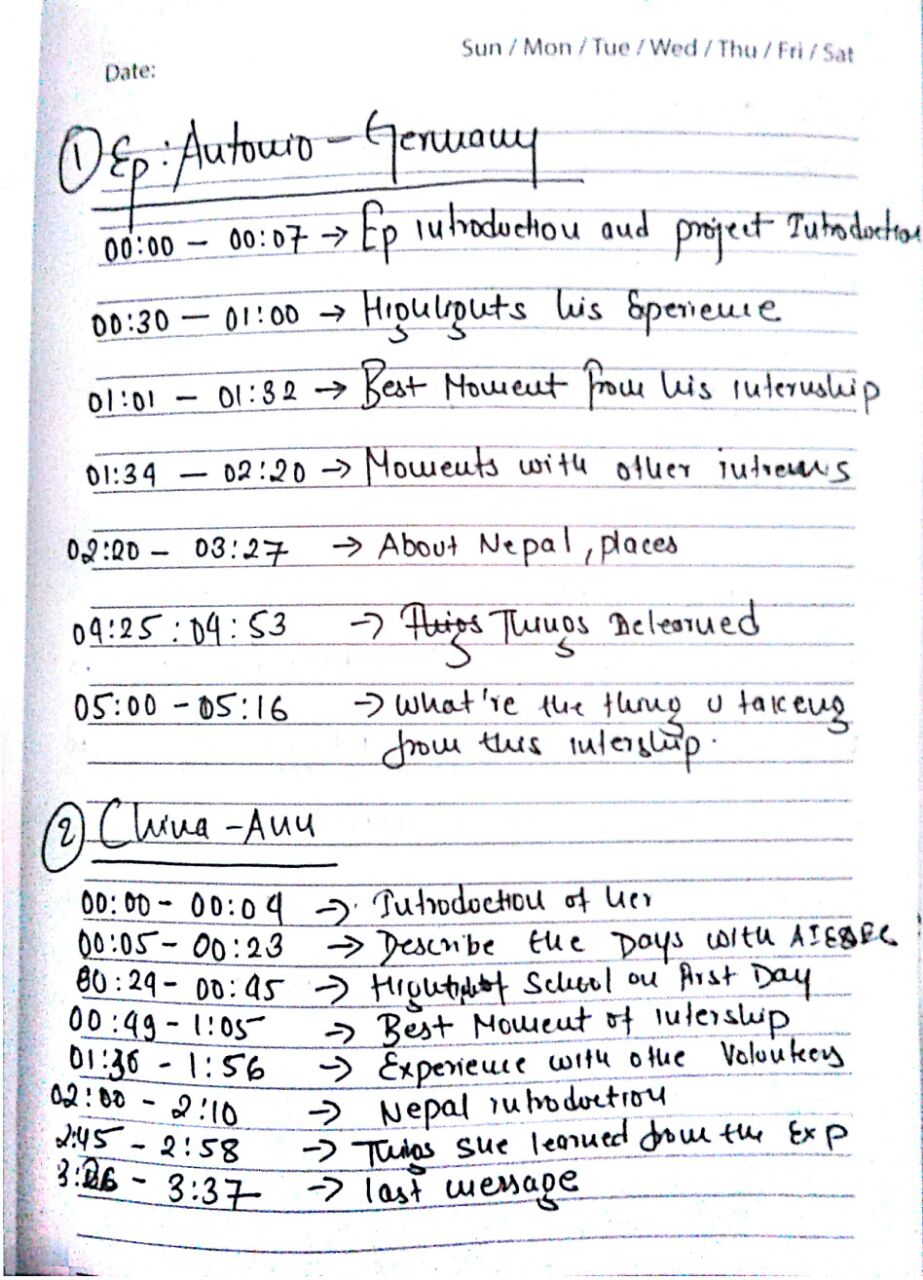 Sun / Mon / Tue / Wed / Thu / Fri / Sat
Date:
① Ep: Antonio - Germany
00:00 - 00:07 → Ep introduction and project Introduction
00:30 - 01:00 → Highlights his Experience
01:01 - 01:32 → Best Moment from his internship
01:34 - 02:20 → Moments with other intrens
02:20 - 03:27 → About Nepal, places
04:25 : 04:53 → Things Things Belearned
05:00 - 05:16 → What're the thing u takeng
from this intership.
② China - Ann
00:00 - 00:04 → Introduction of her
00:05 - 00:23 → Describe the Days with AIESEC
00:24 - 00:45 → Hight of School on first Day
00:49 - 1:05 → Best Moment of intership
01:36 - 1:56 → Experience with othe Volounteers
02:00 - 2:10 → Nepal introduction
2:45 - 2:58 → Things she learned from the Exp
3:26 - 3:37 → last message